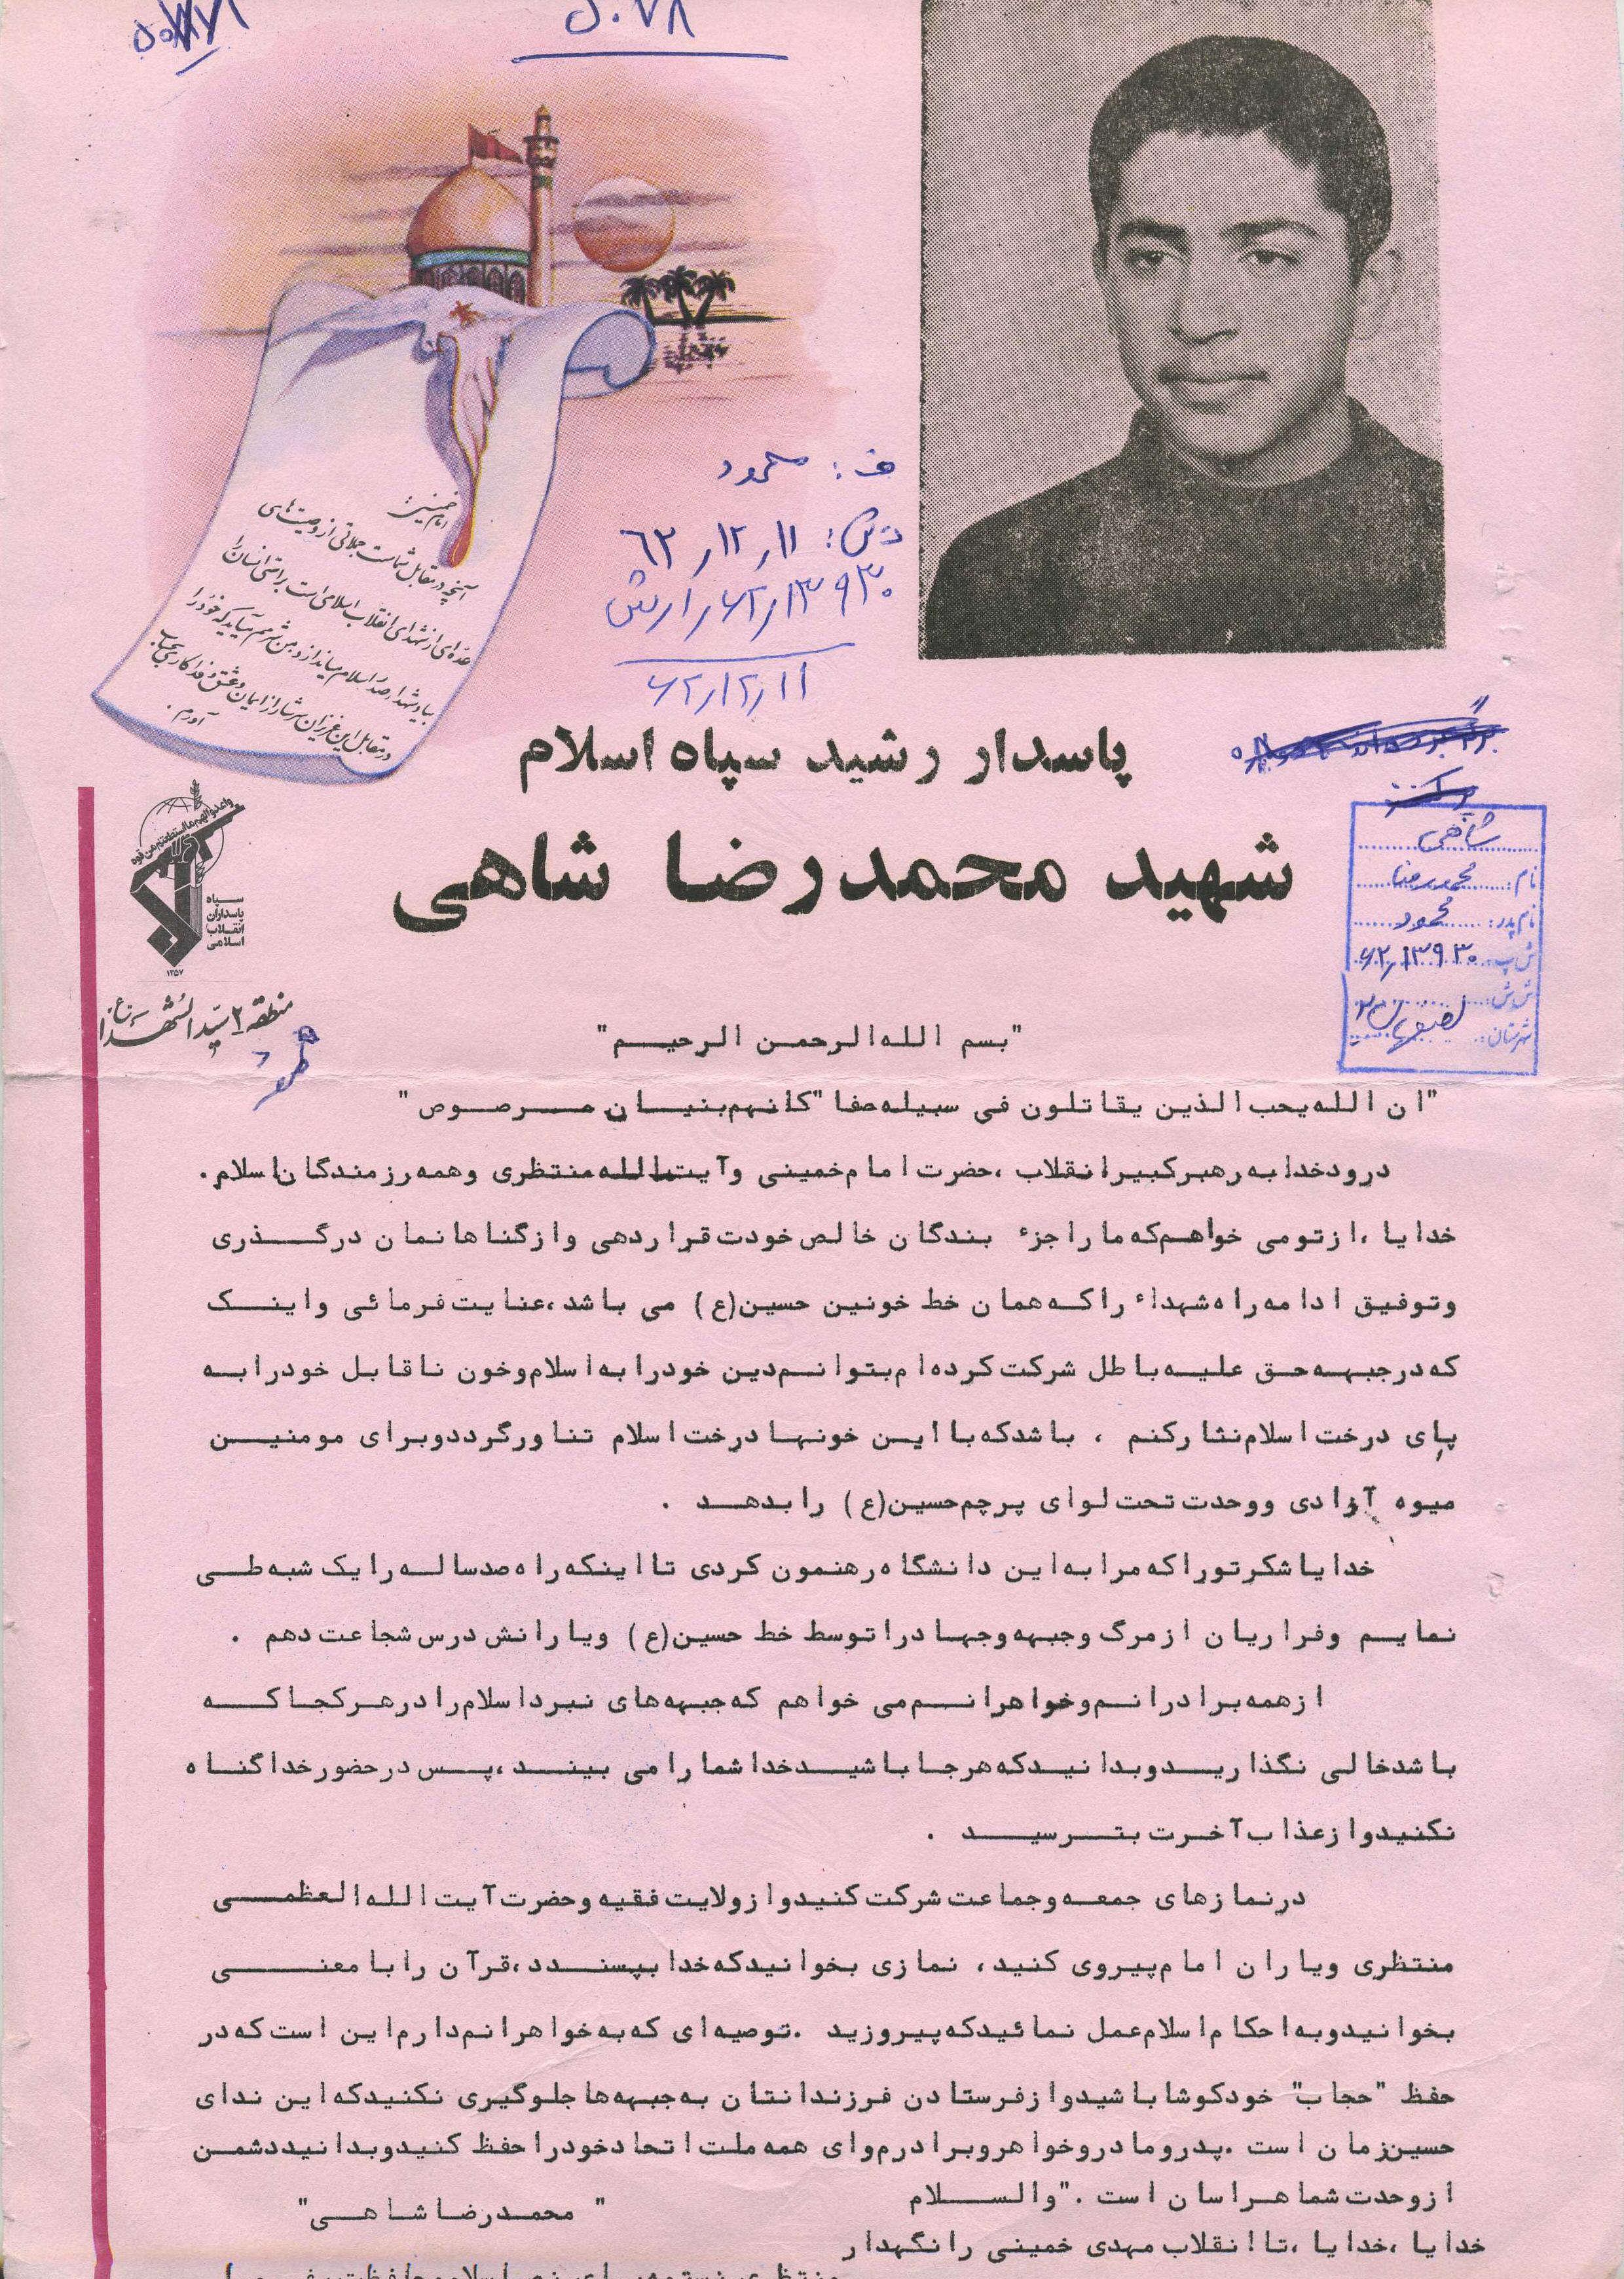 ۵۰۷۸
امام خمینی:
آنچه در مقابل شماست جملاتی از وصیت‌های
عده‌ای از شهدای انقلاب اسلامی است براستی انسان را
بیاد شهدا صدر اسلام میاندازد و من شرمم میآید که خود را
در مقابل این عزیزان سرشار از ایمان و عشق و فداکاری بحساب
آورم.
ف: محمود
۶۲٫۱۲٫۱۱
۶۲٫۱۳۹۳۰
۶۲٫۱۲٫۱۱
پاسدار رشید سپاه اسلام
شهید محمدرضا شاهی
شاهی
نام: محمدرضا
نام پدر: محمود
ش پ: ۶۲٫۱۳۹۳۰
ش ش:
شهرستان:
واعدوا لهم ما استطعتم من قوه
سپاه
پاسداران
انقلاب
اسلامی
۱۳۵۷
منطقه ۲ سیدالشهدا
"بسم الله الرحمن الرحیم"
"ان الله یحب الذین یقاتلون فی سبیله صفا "کانهم بنیان مرصوص"
درود خدا به رهبر کبیر انقلاب ،حضرت امام خمینی و آیت‌الله منتظری و همه رزمندگان اسلام.
خدایا ،از تو می خواهم که ما را جزء بندگان خالص خودت قرار دهی و از گناهانمان درگذری
و توفیق ادامه راه شهداء را که همان خط خونین حسین(ع) می باشد،عنایت فرمائی و اینک
که در جبهه حق علیه باطل شرکت کرده‌ام بتوانم دین خود را به اسلام و خون ناقابل خود را به
پای درخت اسلام نثار کنم ، باشد که با این خونها درخت اسلام تناور گردد و برای مومنین
میوه آزادی و وحدت تحت لوای پرچم حسین(ع) را بدهد .
خدایا شکر تو را که مرا به این دانشگاه رهنمون کردی تا اینکه راه صد ساله را یک شبه طی
نمایم و فراریان از مرگ و جبهه و جهاد را توسط خط حسین(ع) و یارانش درس شجاعت دهم .
از همه برادرانم و خواهرانم می خواهم که جبهه‌های نبرد اسلام را در هر کجا که
باشد خالی نگذارید و بدانید که هر جا باشید خدا شما را می بیند ،پس در حضور خدا گناه
نکنید و از عذاب آخرت بترسید .
در نمازهای جمعه و جماعت شرکت کنید و از ولایت فقیه و حضرت آیت الله العظمی
منتظری و یاران امام پیروی کنید، نمازی بخوانید که خدا بپسندد،قرآن را با معنی
بخوانید و به احکام اسلام عمل نمائید که پیروزید .توصیه‌ای که به خواهرانم دارم این است که در
حفظ "حجاب" خود کوشا باشید و از فرستادن فرزندانتان به جبهه‌ها جلوگیری نکنید که این ندای
حسین زمان است .پدر و مادر و خواهر و برادرم و ای همه ملت اتحاد خود را حفظ کنید و بدانید دشمن
از وحدت شما هراسان است ."والسلام
" محمدرضا شاهی"
خدایا ،خدایا ،تا انقلاب مهدی خمینی را نگهدار